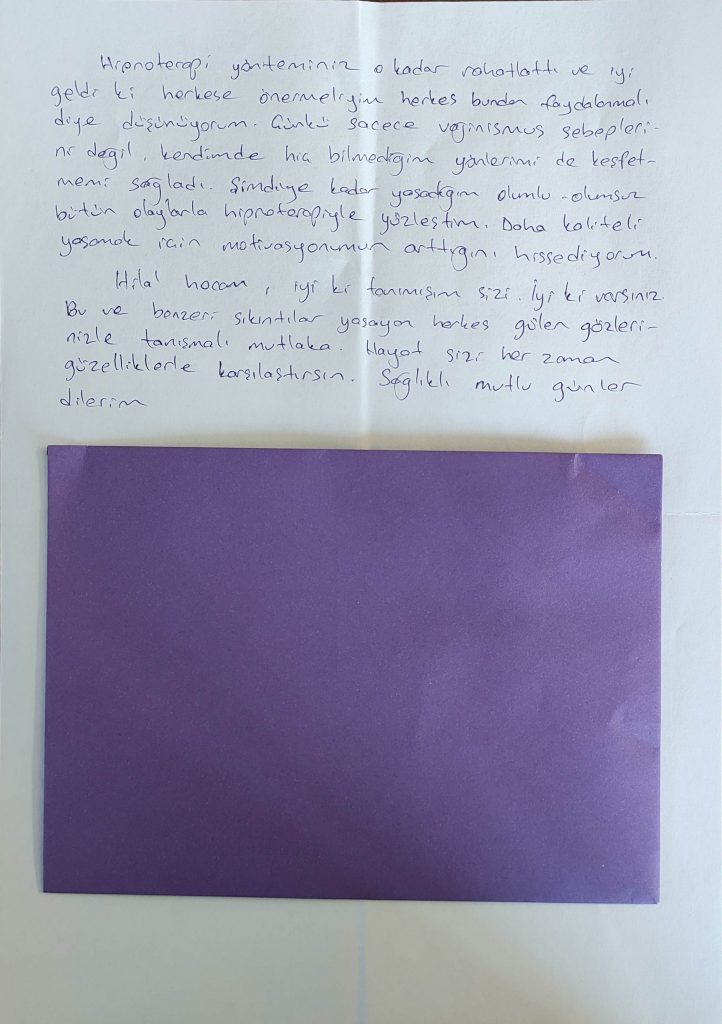 Hipnoterapi yönteminiz o kadar rahatlattı ve iyi
geldi ki herkese önermeliyim herkes bundan faydalanmalı
diye düşünüyorum. Çünkü sacece vajinismus sebepleri-
ni değil, kendimde hiç bilmediğim yönlerimi de keşfet-
memi sağladı. Şimdiye kadar yaşadığım olumlu-olumsuz
bütün olaylarla hipnoterapiyle yüzleştim. Daha kaliteli
yaşamak için motivasyonumun arttığını hissediyorum.
Hilal hocam, iyi ki tanımışım sizi. İyi ki varsınız.
Bu ve benzeri sıkıntılar yaşayan herkes gülen gözleri-
nizle tanışmalı mutlaka. Hayat sizi her zaman
güzelliklerle karşılaştırsın. Sağlıklı mutlu günler
dilerim